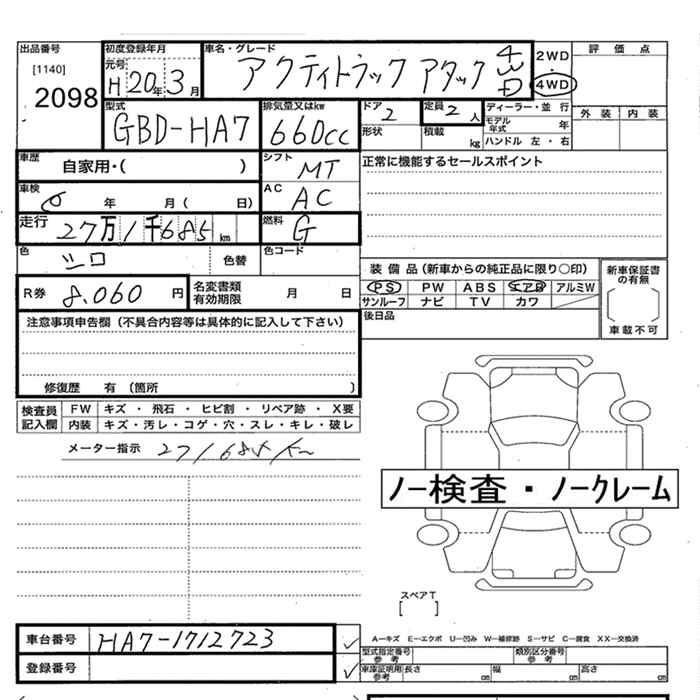 出品番号 初度登録年月 車名・グレード 評価点
[1140] 元号 アクティトラック アタック 4WD 2WD
2098 H20年3月 4WD
型式 排気量又はkw ドア 定員 ディーラー・並行 外装 内装
GBD-HA7 660cc 2 2人 モデル年式 年
形状 積載 kg ハンドル 左・右
車歴 自家用・( ) シフト MT 正常に機能するセールスポイント
車検 年 月( 日) AC AC
走行 27万1千685km 燃料 G
色 シロ 色替 色コード 装備品(新車からの純正品に限り○印) 新車保証書の有無
R券 8.060円 名変書類有効期限 月 日 PS PW ABS エアB アルミW
サンルーフ ナビ TV カワ 車載不可
注意事項申告欄(不具合内容等は具体的に記入して下さい) 後日品
修復歴 有(箇所 )
検査員記入欄 FW キズ・飛石・ヒビ割・リペア跡・X要
内装 キズ・汚レ・コゲ・穴・スレ・キレ・破レ
メーター指示 271685km
ノー検査・ノークレーム
スペアT
[ ]
車台番号 HA7-1712723 A―キズ E―エクボ U―凹み W―補修跡 S―サビ C―腐食 XX―交換済
登録番号 型式指定番号参考 類別区分番号参考
車庫証明用参考 長さ cm 幅 cm 高さ cm